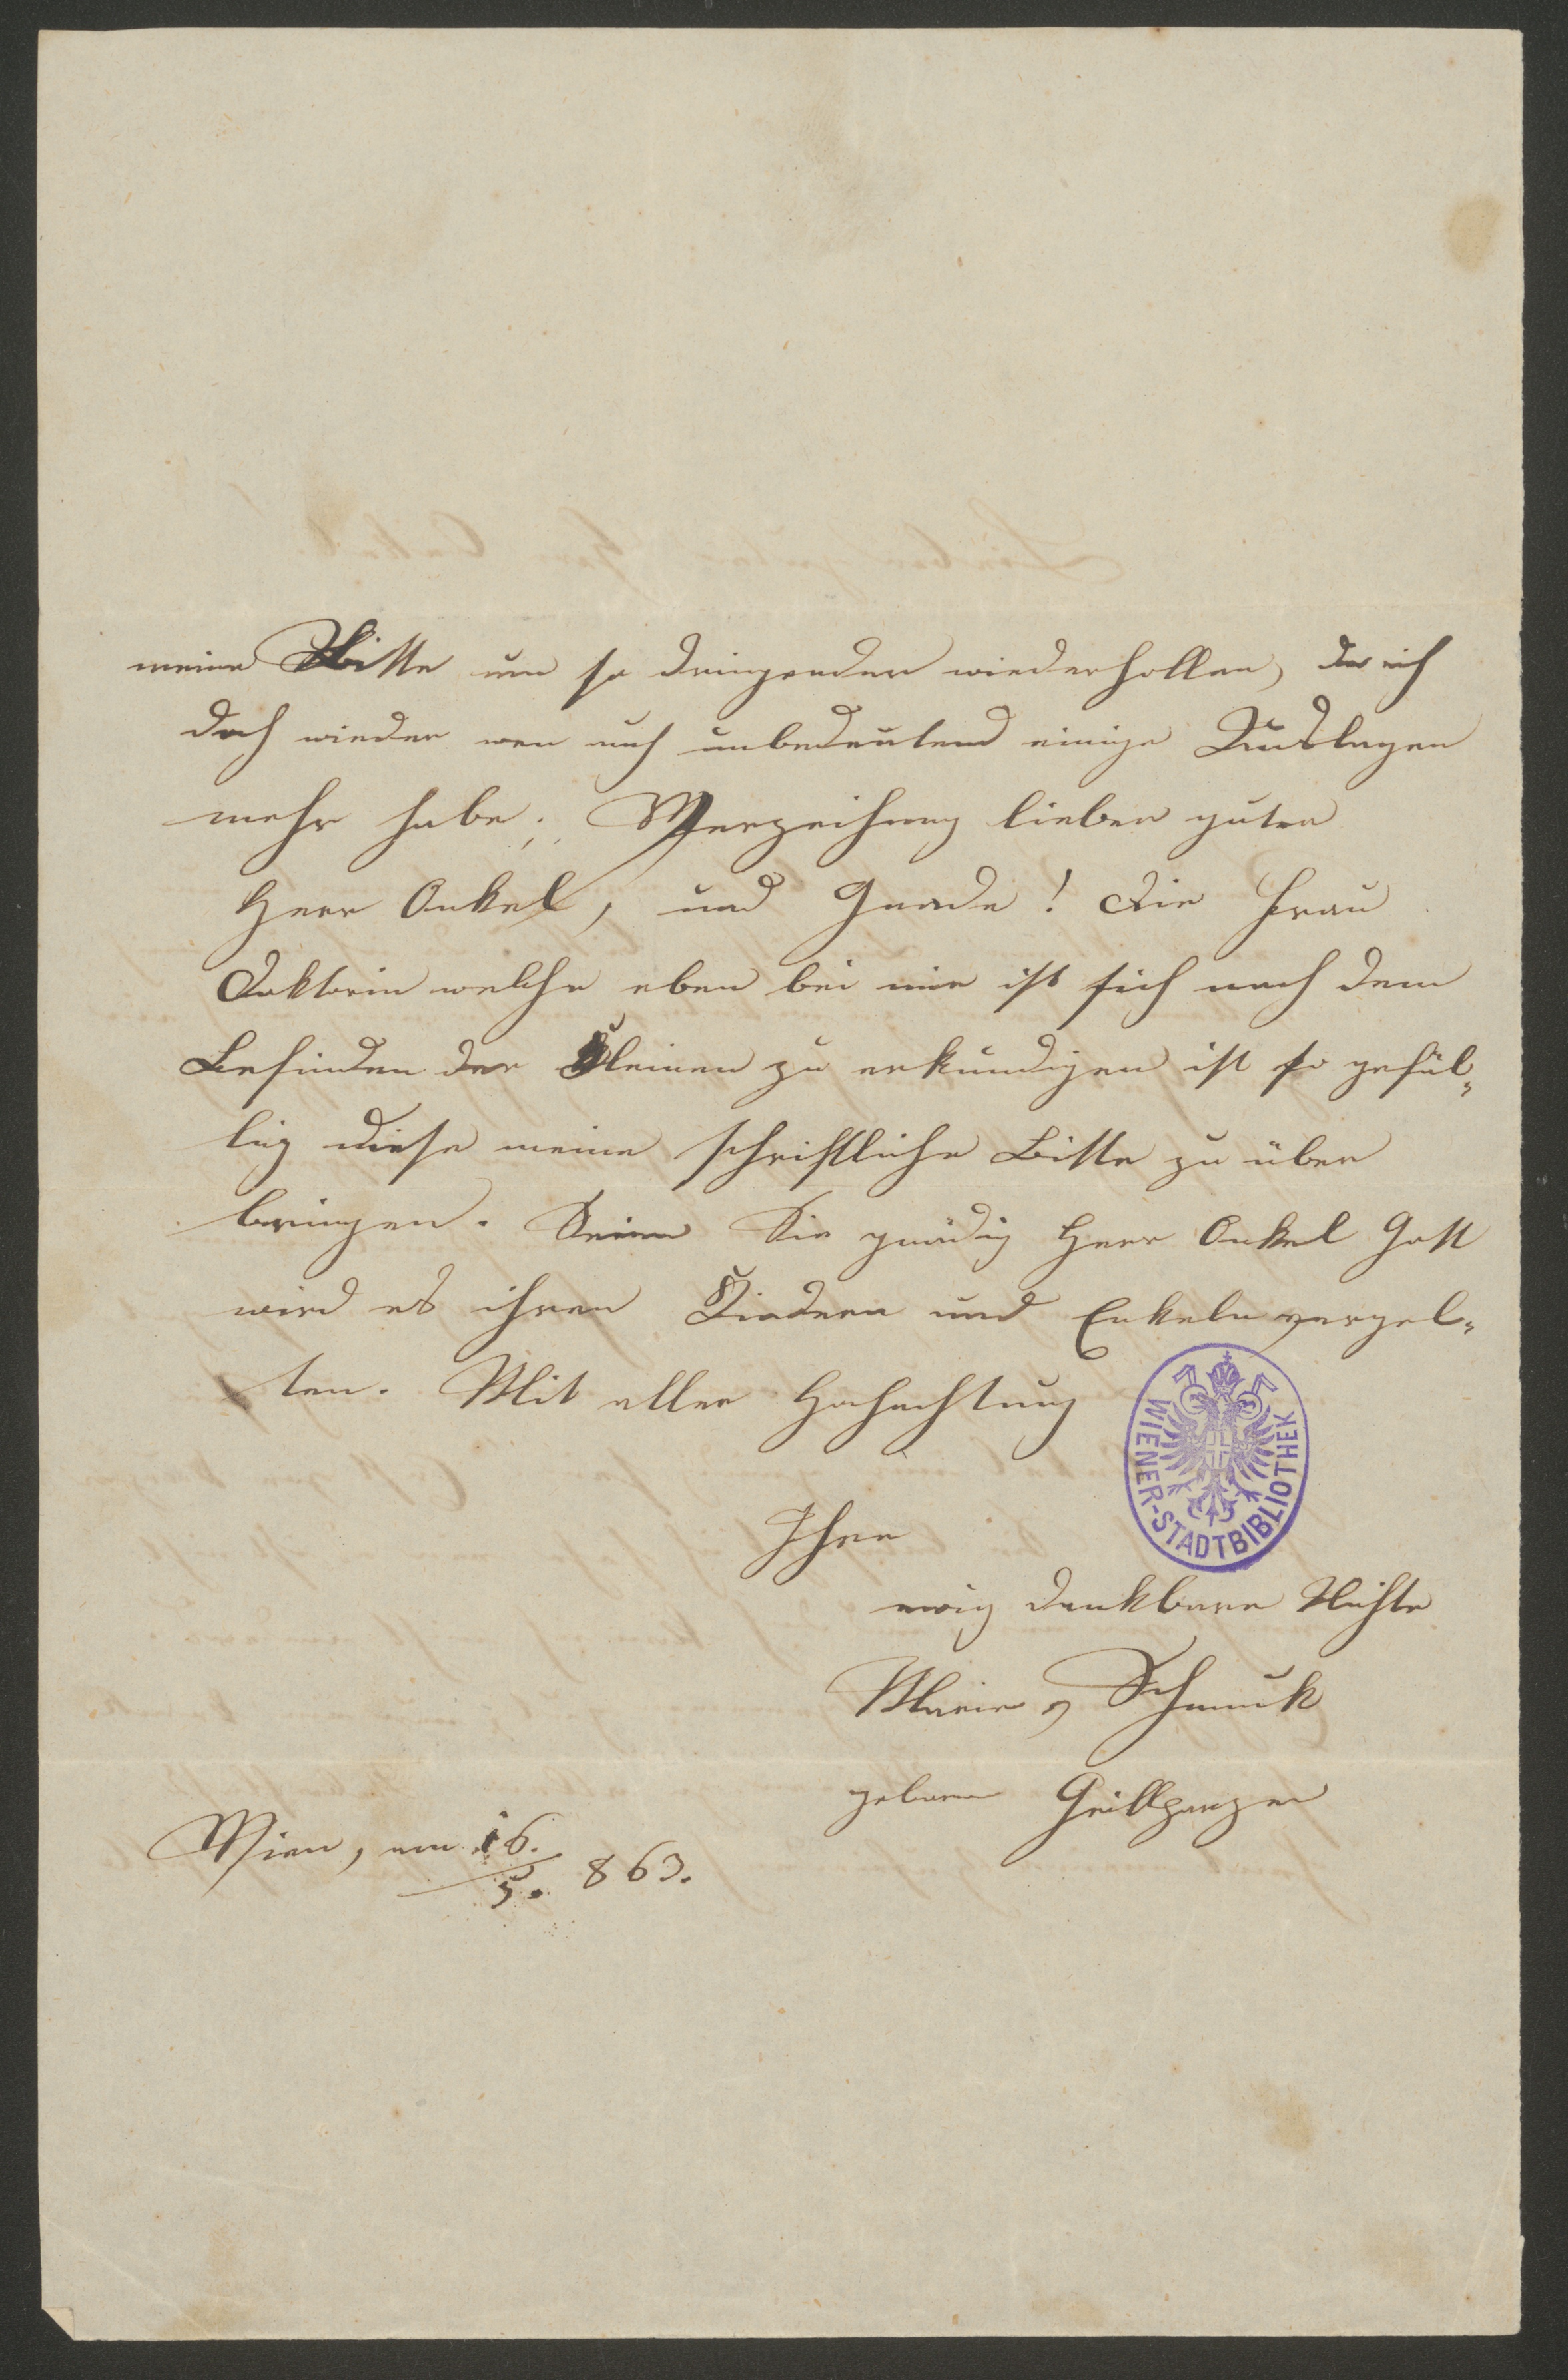 meine Bitte um so dringender wiederhollen, da ich
doch wieder wen auch unbedeutend einige Auslagen
mehr habe; Verzeihung lieber guter
Herr Onkel, und Gnade! Die Frau
Doktorin welche eben bei mir ist sich nach dem
Befinden der Kleinen zu erkundigen ist so gefäl„
lig diese meine schriftliche Bitte zu über
bringen. Seien Sie gnädig Herr Onkel Gott
wird es ihren Kindern und Enkeln vergel„
ten. Mit aller Hochachtung
Ihre
ewig dankbare Nichte
Marie v Schmuk
geborne Grillparzer
Wien, am 16./5. 863.
WIENER-STADTBIBLIOTHEK